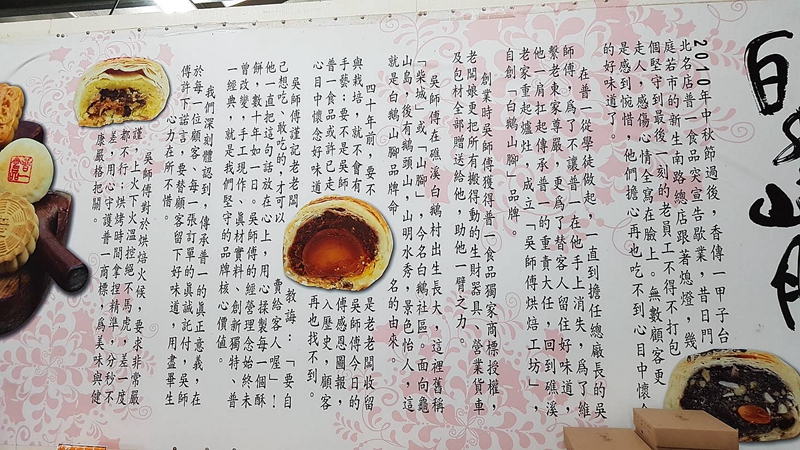 白鵝山腳
2010年中秋節過後，香傳一甲子台
北名店普一食品突宣告歇業，昔日門
庭若市的新生南路總店跟著熄燈，幾
個堅守到最後一刻的老員工不得不打包
走人，感傷心情全寫在臉上。無數顧客更
是感到惋惜，他們擔心再也吃不到心目中懷念
的好味道了。
在普一從學徒做起，一直到擔任總廠長的吳
師傅，為了不讓普一在他手上消失，為了維
繫老東家尊嚴，更為了替客人留住好味道，
他一肩扛起傳承普一的重責大任，回到礁溪
老家重起爐灶，成立「吳師傅烘焙工坊」，
自創「白鵝山腳」品牌。
創業時吳師傅獲得普一食品獨家商標授權，
老闆娘更把所有搬得動的生財器具、營業貨車
及包材全部贈送給他，助他一臂之力。
吳師傅在礁溪白鵝村出生長大，這裡舊稱
「柴城」或「山腳」，今名白鵝社區。面向龜
山島，後有鵝頭山，山明水秀，景色怡人，這
就是白鵝山腳品牌命名的由來。
四十年前，要不是老老闆收留
與栽培，就不會有吳師傅今日的
手藝；要不是吳師傅感恩圖報，
普一食品或許已走入歷史，顧客
心目中懷念好味道再也找不到。
吳師傅謹記老老闆教誨：「要自
己想吃、敢吃的，才可以賣給客人喔」！
他一直把這句話放在心上，用心揉製每一個酥
餅，數十年如一日。吳師傅的經營理念始終未
曾改變，手工現作、真材實料、創新獨特、普
一經典，就是我們堅守的品牌核心價值。
我們深刻體認到，傳承普一的真正意義，在
於每一位顧客、每一張訂單的真誠託付，吳師
傅許下諾言，要替顧客留下好味道，用盡畢生
心力在所不惜。
吳師傅對於烘焙火候，要求非常嚴
謹，上火下火溫控絕不馬虎，差一度
都不行；烘烤時間拿捏精準，分秒不
差，用心守護普一商標，為美味與健
康嚴格把關。